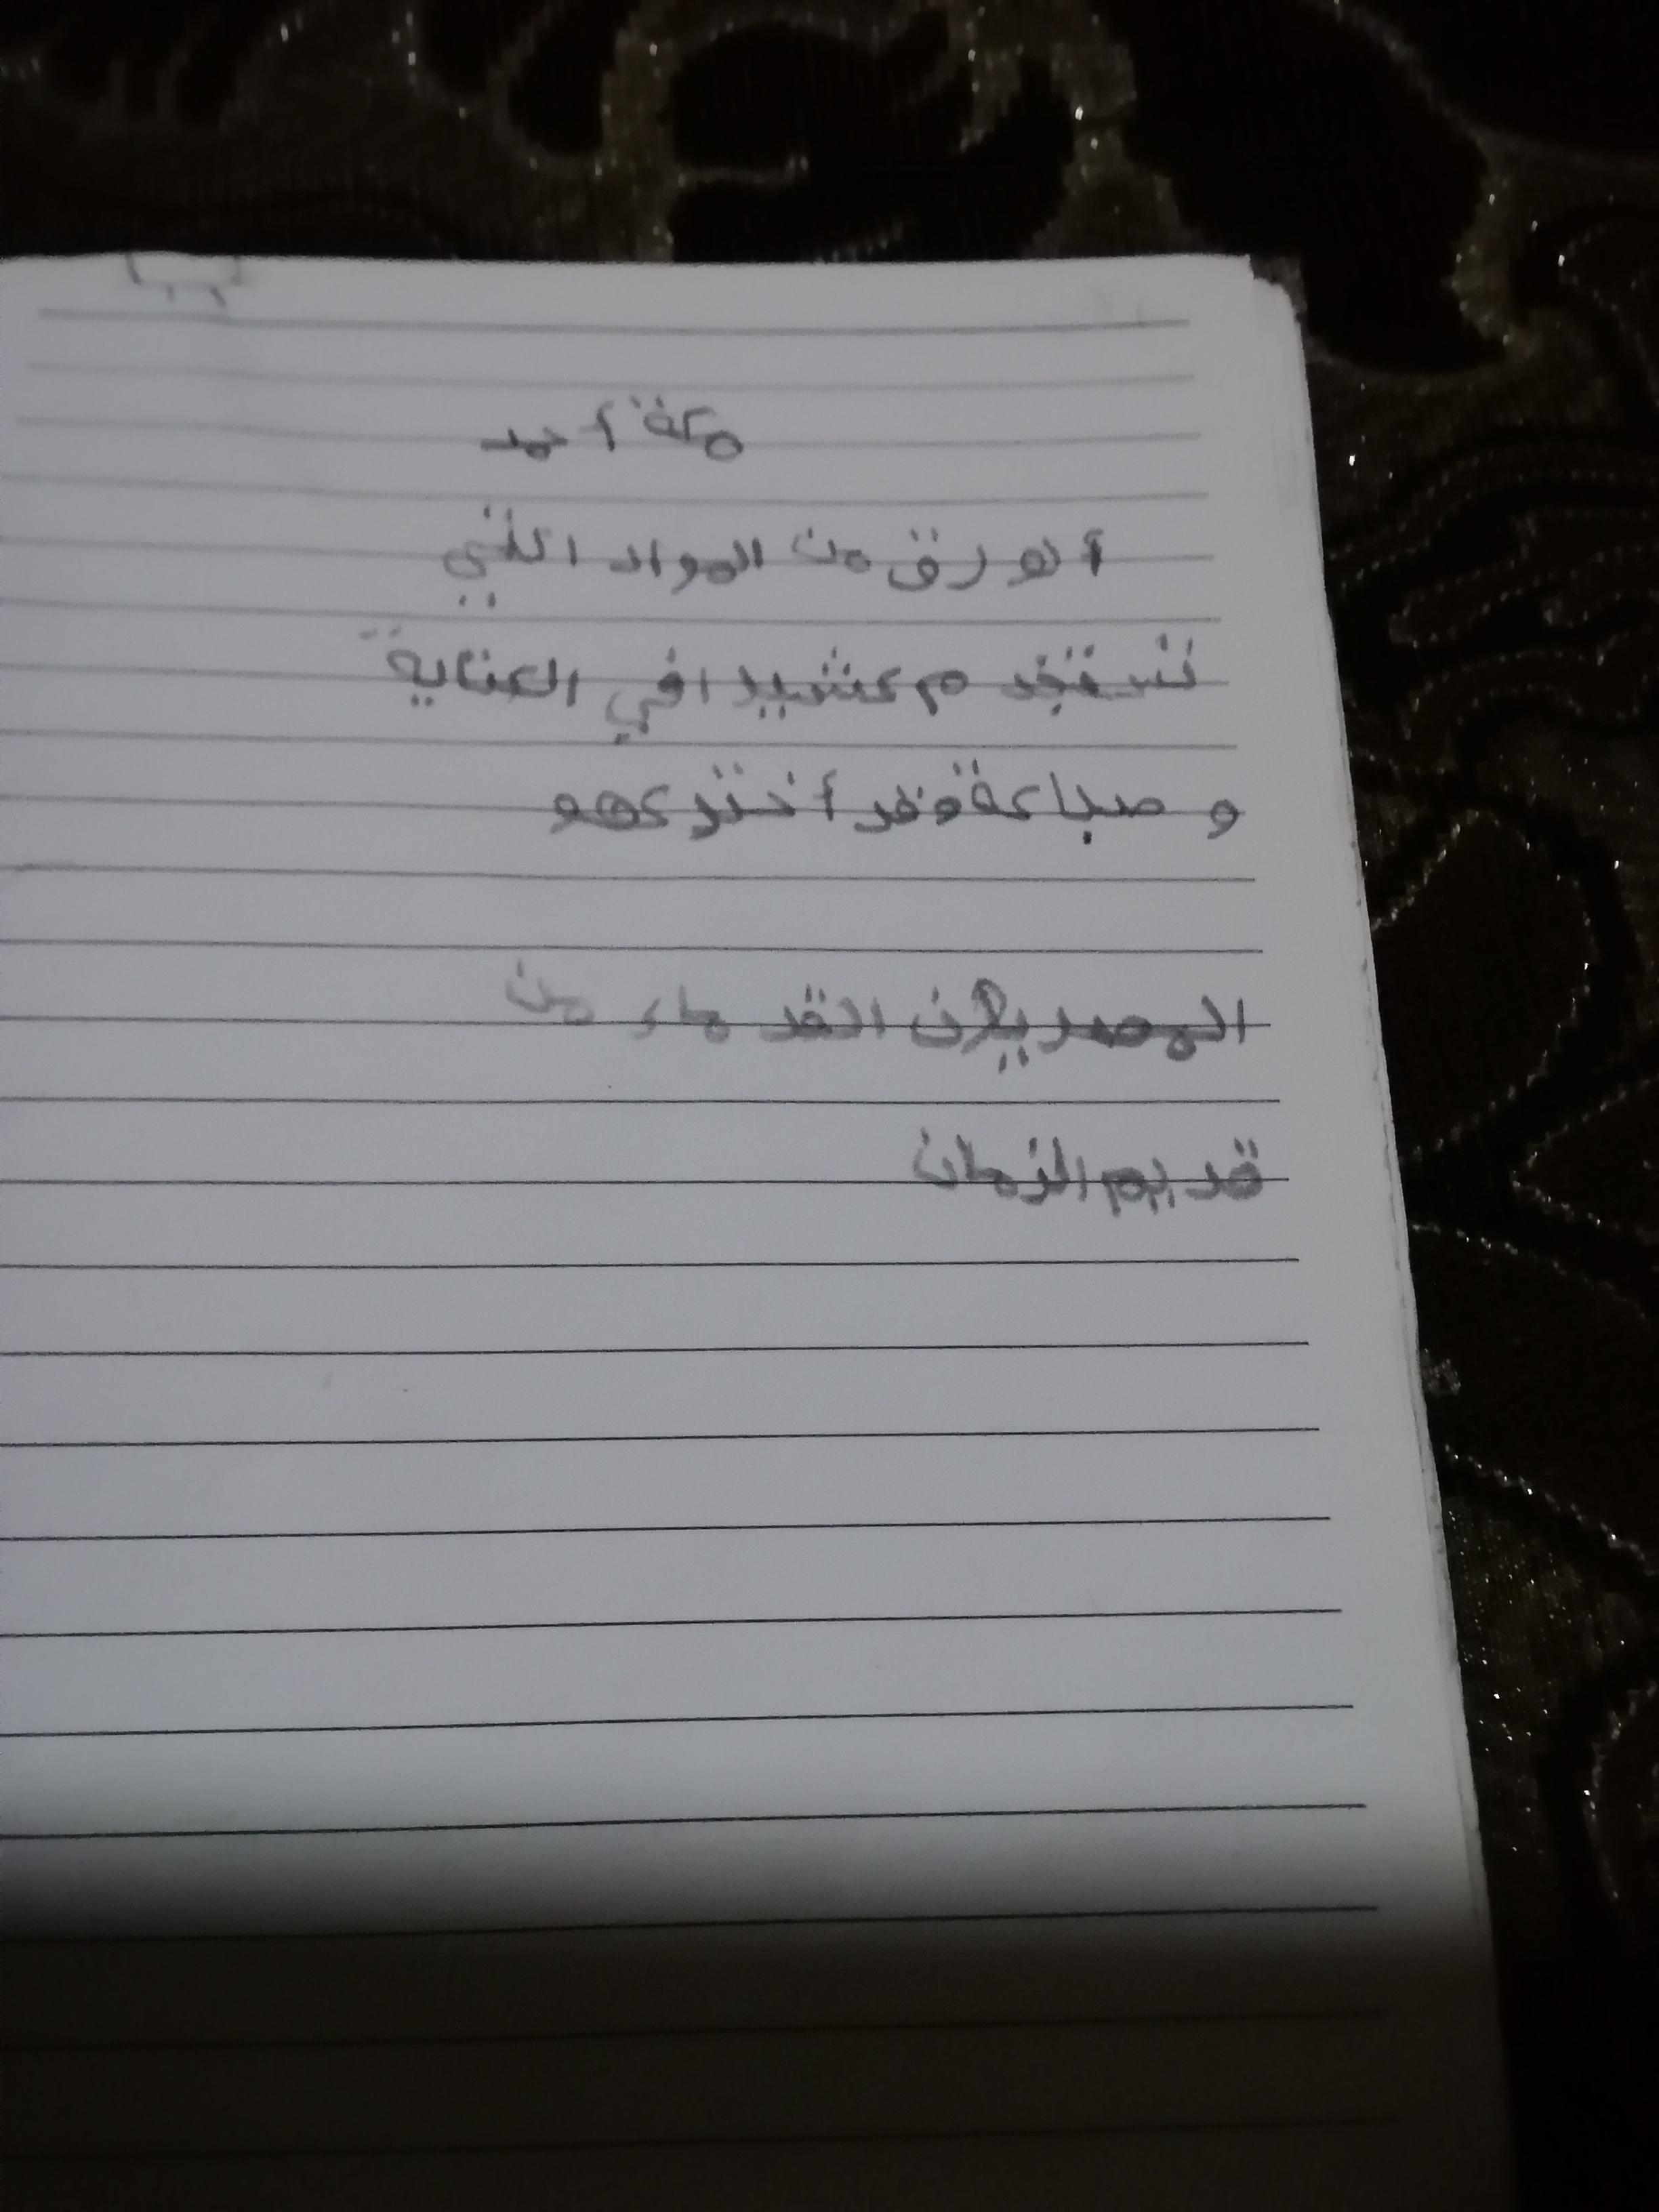 مكة أحمد
ألورق من المواد اللتي
نستخدم كشيرا في العناية
و صباعة وقد أختركهو
المصريلان القدماء من
قديم الزمان